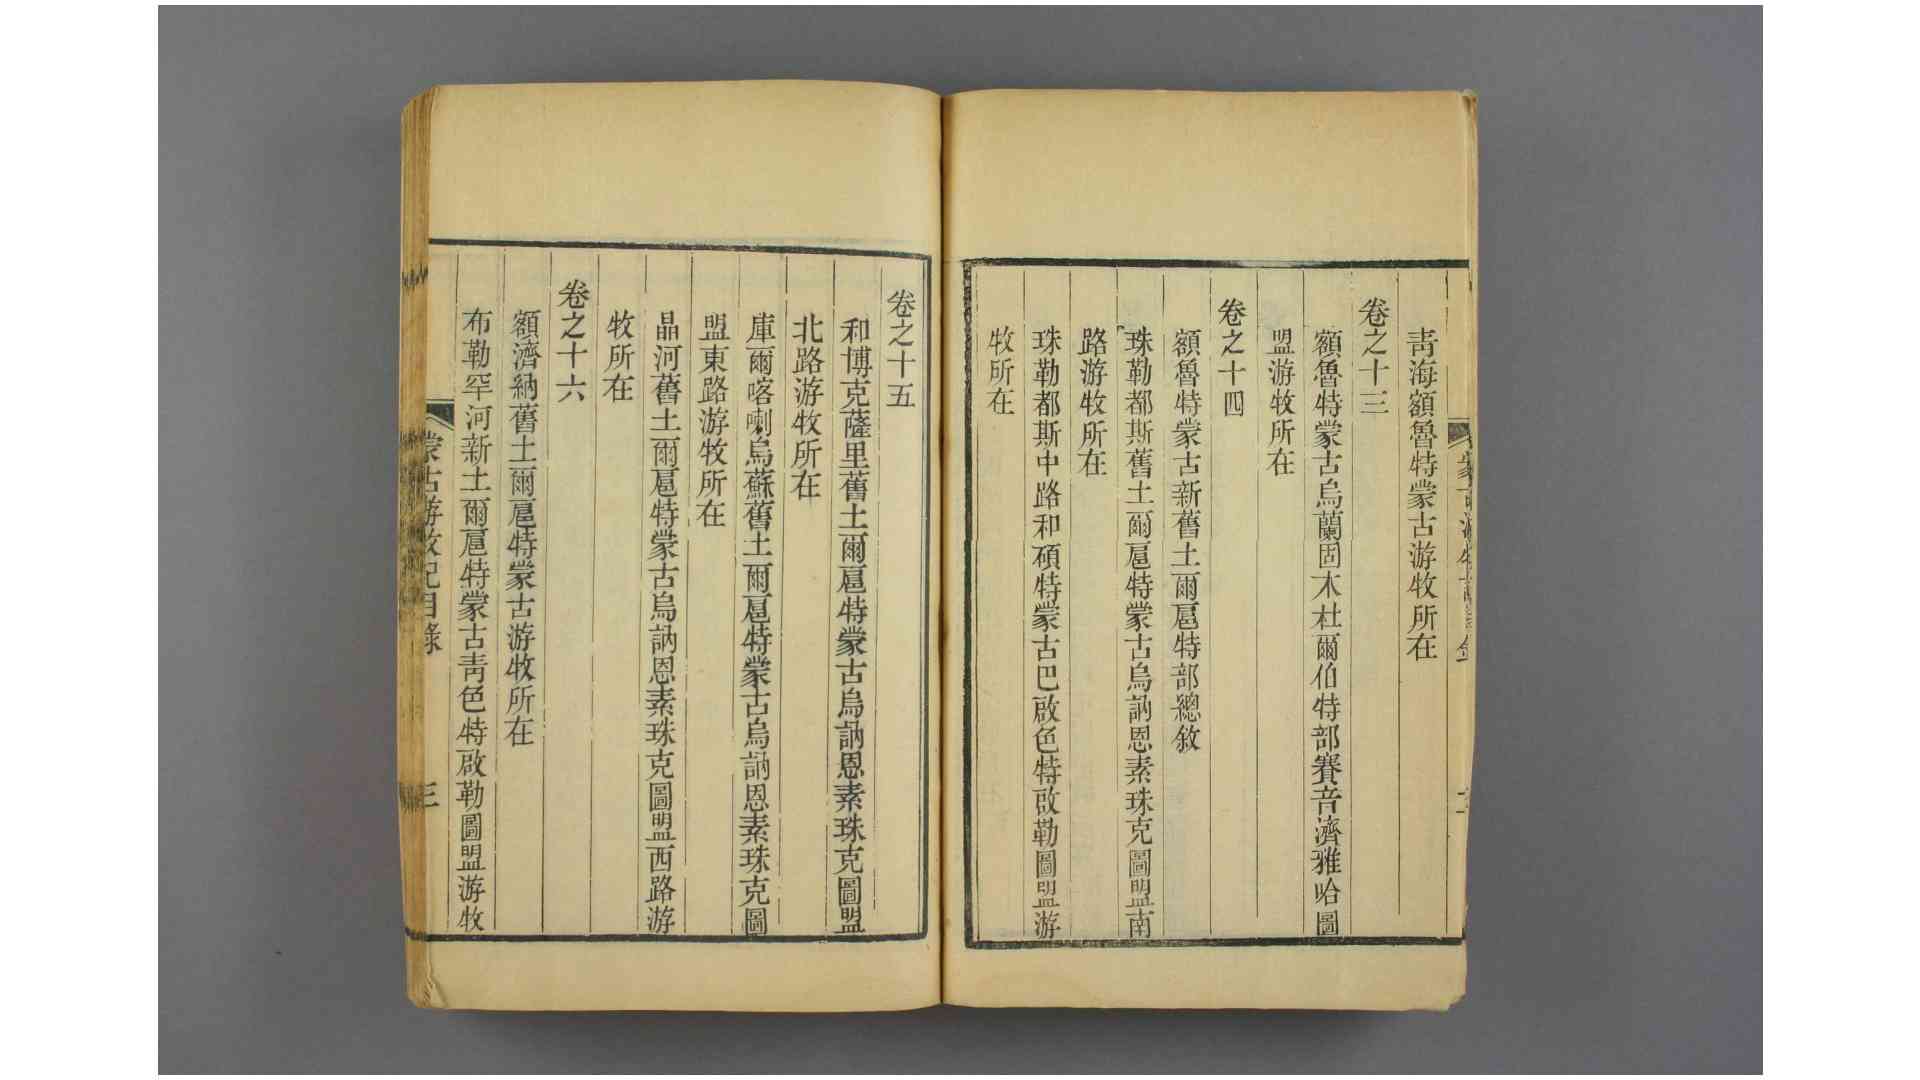 青海額魯特蒙古游牧所在
卷之十三
額魯特蒙古烏蘭固木杜爾伯特部賽音濟雅哈圖
盟游牧所在
卷之十四
額魯特蒙古新舊土爾扈特部總敘
珠勒都斯舊土爾扈特蒙古烏訥恩素珠克圖盟南
路游牧所在
珠勒都斯中路和碩特蒙古巴啟色特啟勒圖盟游
牧所在
卷之十五
和博克薩里舊土爾扈特蒙古烏訥恩素珠克圖盟
北路游牧所在
庫爾喀喇烏蘇舊土爾扈特蒙古烏訥恩素珠克圖
盟東路游牧所在
晶河舊土爾扈特蒙古烏訥恩素珠克圖盟西路游
牧所在
卷之十六
額濟納舊土爾扈特蒙古游牧所在
布勒罕河新土爾扈特蒙古青色特啟勒圖盟游牧
蒙古游牧記目錄
三